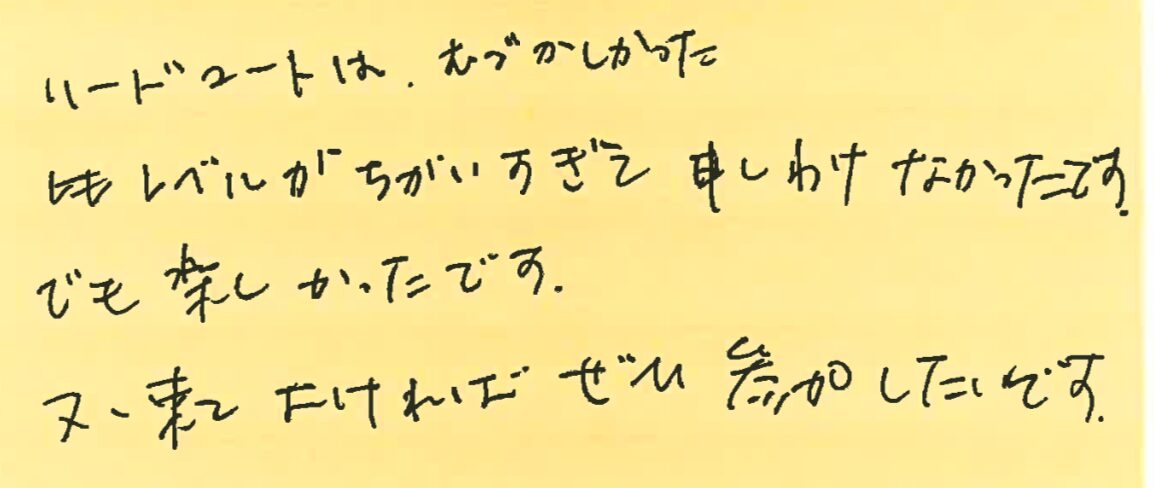 ハードコートは、むづかしかった
レベルがちがいすぎて 申しわけなかったです。
でも楽しかったです。
又、来て よければ ぜひ 参加したいです。